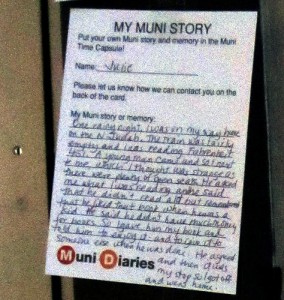 MY MUNI STORY
Put your own Muni story and memory in the Muni
Time Capsule!
Name: Julie
Please let us know how we can contact you on the
back of the card.
My Muni story or memory:
One rainy night, I was on my way home
on the N Judah. The train was fairly
empty and I was reading Fahrenheit
451. A young man came and sat next
to me, which I thought was strange as
there were plenty of open seats. He asked
me what I was reading and he said
that he didn't read a lot but remembered
that he liked that book when he was a
kid. He said he didn't have much money
for books. So I gave him my book and
told him to enjoy it and to give it to
someone else when he was done. He agreed
and then it was
my stop so I got off
and went home.
Muni Diaries